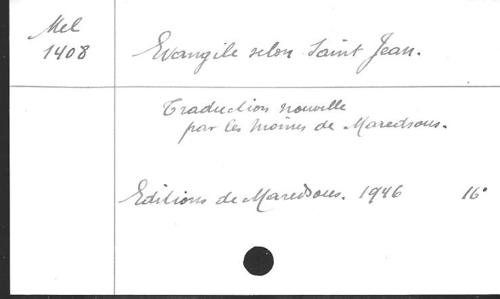 Mel
1408
Evangile selon Saint Jean.
Traduction nouvelle
par les Moines de Maredsous.
Editions de Maredsous. 1946 16°